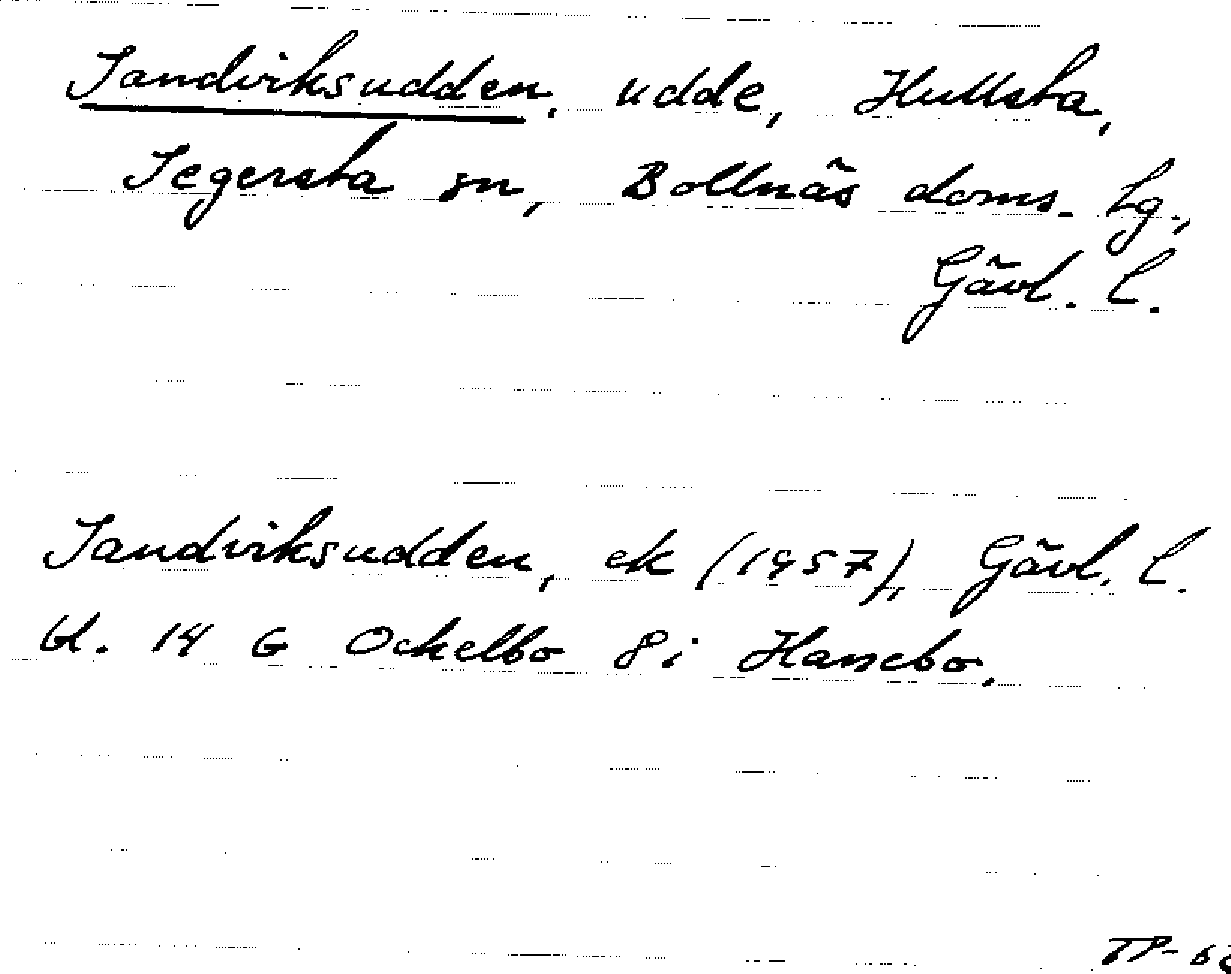 Sandviksudden, udde, Hullsta,
Segersta sn, Bollnäs doms. hg.,
Gävl. l.
Sandviksudden, ek (1957), Gävl. l.
bl. 14 G Ockelbo 8i Hanebo.